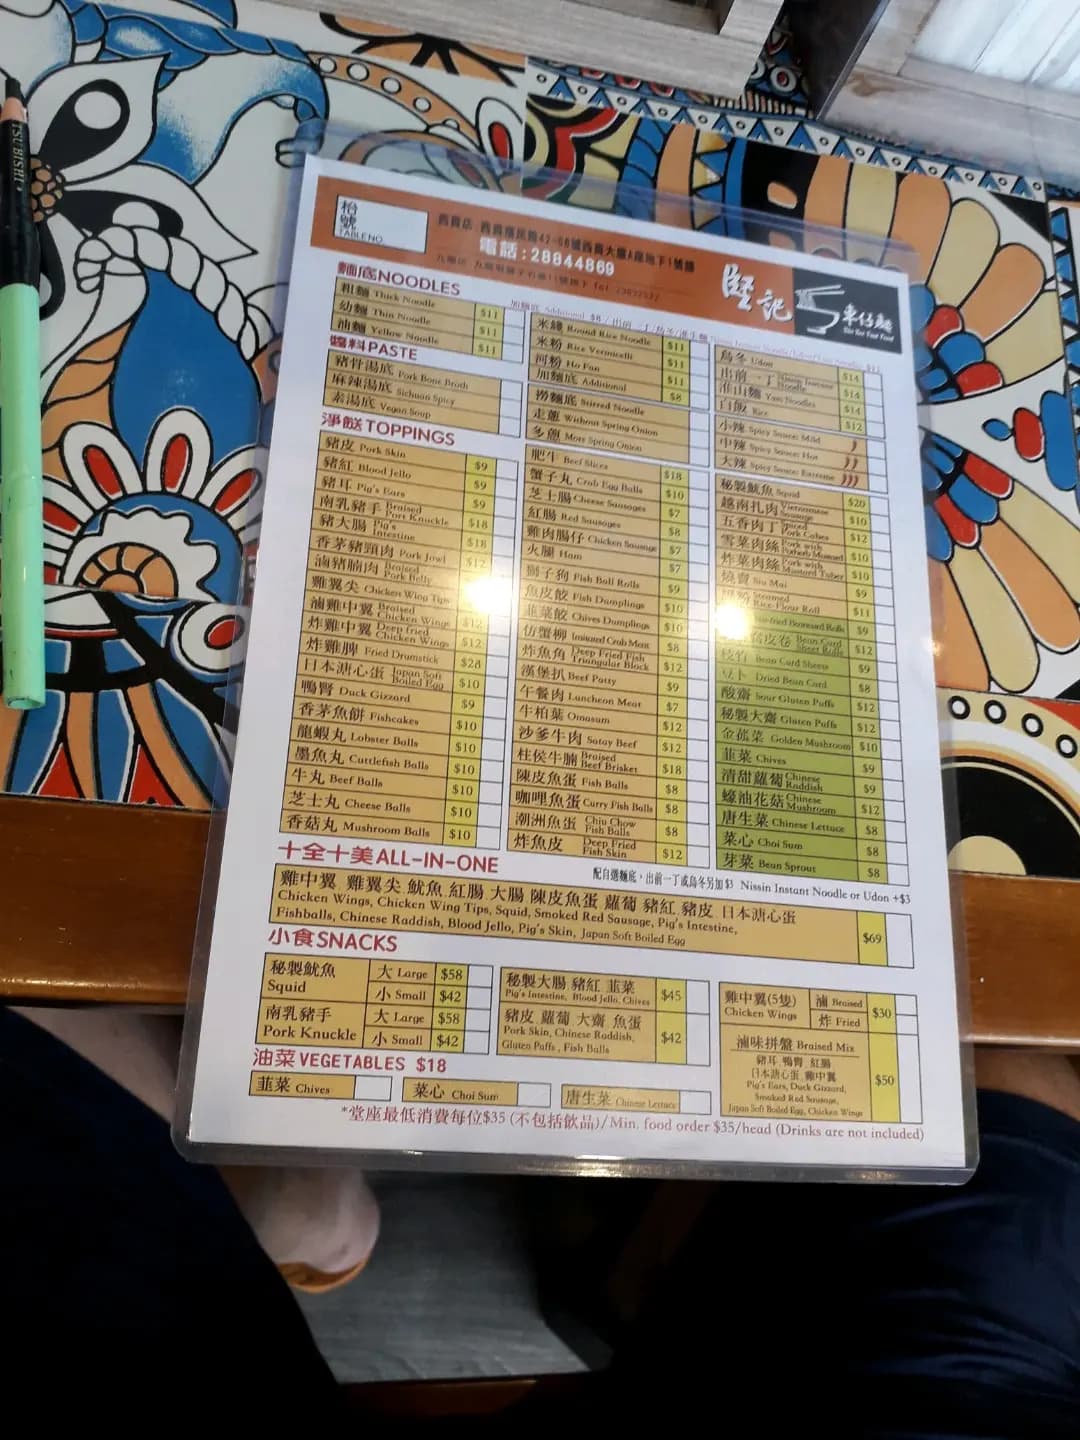 枱號
TABLE NO.
電話:28844869
堅記
車仔麵
麵底NOODLES
粗麵 Thick Noodle $11
幼麵 Thin Noodle $11
油麵 Yellow Noodle $11
米綫 Round Rice Noodle $11
米粉 Rice Vermicelli $11
河粉 Ho Fan $11
加麵底 Additional $8
烏冬 Udon $14
出前一丁 Nissin Instant Noodle $14
淮山麵 Yam Noodles $14
白飯 Rice $12
醬料PASTE
豬骨湯底 Pork Bone Broth
麻辣湯底 Sichuan Spicy
素湯底 Vegan Soup
撈麵底 Stirred Noodle
走蔥 Without Spring Onion
多蔥 More Spring Onion
小辣 Spicy Sauce: Mild
中辣 Spicy Sauce: Hot
大辣 Spicy Sauce: Extreme
淨餸TOPPINGS
豬皮 Pork Skin $9
豬紅 Blood Jello $9
豬耳 Pig's Ears $9
南乳豬手 Braised Pork Knuckle $18
豬大腸 Pig's Intestine $18
香茅豬頸肉 Pork Jowl $12
滷豬腩肉 Braised Pork Belly
雞翼尖 Chicken Wing Tips
滷雞中翼 Braised Chicken Wings $12
炸雞中翼 Deep fried Chicken Wings $12
炸雞脾 Fried Drumstick $28
日本溏心蛋 Japan Soft Boiled Egg $10
鴨腎 Duck Gizzard $9
香茅魚餅 Fishcakes $10
龍蝦丸 Lobster Balls $10
墨魚丸 Cuttlefish Balls $10
牛丸 Beef Balls $10
芝士丸 Cheese Balls $10
香菇丸 Mushroom Balls $10
肥牛 Beef Slices $18
蟹子丸 Crab Egg Balls $10
芝士腸 Cheese Sausages $7
紅腸 Red Sausages $8
雞肉腸仔 Chicken Sausage $7
火腿 Ham $7
獅子狗 Fish Ball Rolls $9
魚皮餃 Fish Dumplings $10
韮菜餃 Chives Dumplings $10
仿蟹柳 Imitated Crab Meat $8
炸魚角 Deep Fried Fish Triangular Block $12
漢堡扒 Beef Patty $9
午餐肉 Luncheon Meat $7
牛柏葉 Omasum $12
沙爹牛肉 Satay Beef $12
柱侯牛腩 Braised Beef Brisket $18
陳皮魚蛋 Fish Balls $8
咖哩魚蛋 Curry Fish Balls $8
潮洲魚蛋 Chiu Chow Fish Balls $8
炸魚皮 Deep Fried Fish Skin $12
秘製魷魚 Squid $20
越南扎肉 Vietnamese Sausage $10
五香肉丁 Spiced Pork Cubes $12
雪菜肉絲 Pork with Potherb Mustard $10
炸菜肉絲 Pork with Mustard Tuber $10
燒賣 Siu Mai $9
Steamed Rice-Flour Roll $11
$9
Bean Curd Sheet Rolls $12
枝竹 Bean Curd Sheets $9
豆卜 Dried Bean Curd $8
酸齋 Sour Gluten Puffs $12
秘製大齋 Gluten Puffs $12
金菇菜 Golden Mushroom $10
韮菜 Chives $9
清甜蘿蔔 Chinese Raddish $9
蠔油花菇 Chinese Mushroom $12
唐生菜 Chinese Lettuce $8
菜心 Choi Sum $8
芽菜 Bean Sprout $8
十全十美ALL-IN-ONE
配自選麵底，出前一丁或烏冬另加$3 Nissin Instant Noodle or Udon +$3
雞中翼 雞翼尖 魷魚 紅腸 大腸 陳皮魚蛋 蘿蔔 豬紅 豬皮 日本溏心蛋
Chicken Wings, Chicken Wing Tips, Squid, Smoked Red Sausage, Pig's Intestine,
Fishballs, Chinese Raddish, Blood Jello, Pig's Skin, Japan Soft Boiled Egg
$69
小食SNACKS
秘製魷魚 Squid
大 Large $58
小 Small $42
南乳豬手 Pork Knuckle
大 Large $58
小 Small $42
秘製大腸 豬紅 韮菜
Pig's Intestine, Blood Jello, Chives
$45
豬皮 蘿蔔 大齋 魚蛋
Pork Skin, Chinese Raddish,
Gluten Puffs , Fish Balls
$42
雞中翼(5隻)
Chicken Wings
滷 Braised
炸 Fried
$30
滷味拼盤 Braised Mix
豬耳 鴨腎 紅腸
日本溏心蛋 雞中翼
Pig's Ears, Duck Gizzard,
Smoked Red Sausage,
Japan Soft Boiled Egg, Chicken Wing
$50
油菜VEGETABLES $18
韮菜 Chives
菜心 Choi Sum
唐生菜 Chinese Lettuce
*堂座最低消費每位$35 (不包括飲品)/Min. food order $35/head (Drinks are not included)